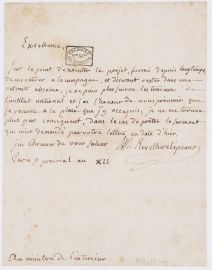 Excellence,
Sur le point d'exécuter le projet, formé depuis longtems
de me retirer à la campagne, et désirant rester dans une
retraite absolue, je ne puis plus suivre les travaux de
l'institut national et j'ai l'honneur de vous prévenir que
je renonce à la place que j'y occupois, je ne me trouve
plus par conséquent, dans le cas de prêter le serment
qui m'est demandé par votre lettre en date d'hier.
j'ai l'honneur de vous saluer
Paris prairial an XII
Au ministre de l'intérieur